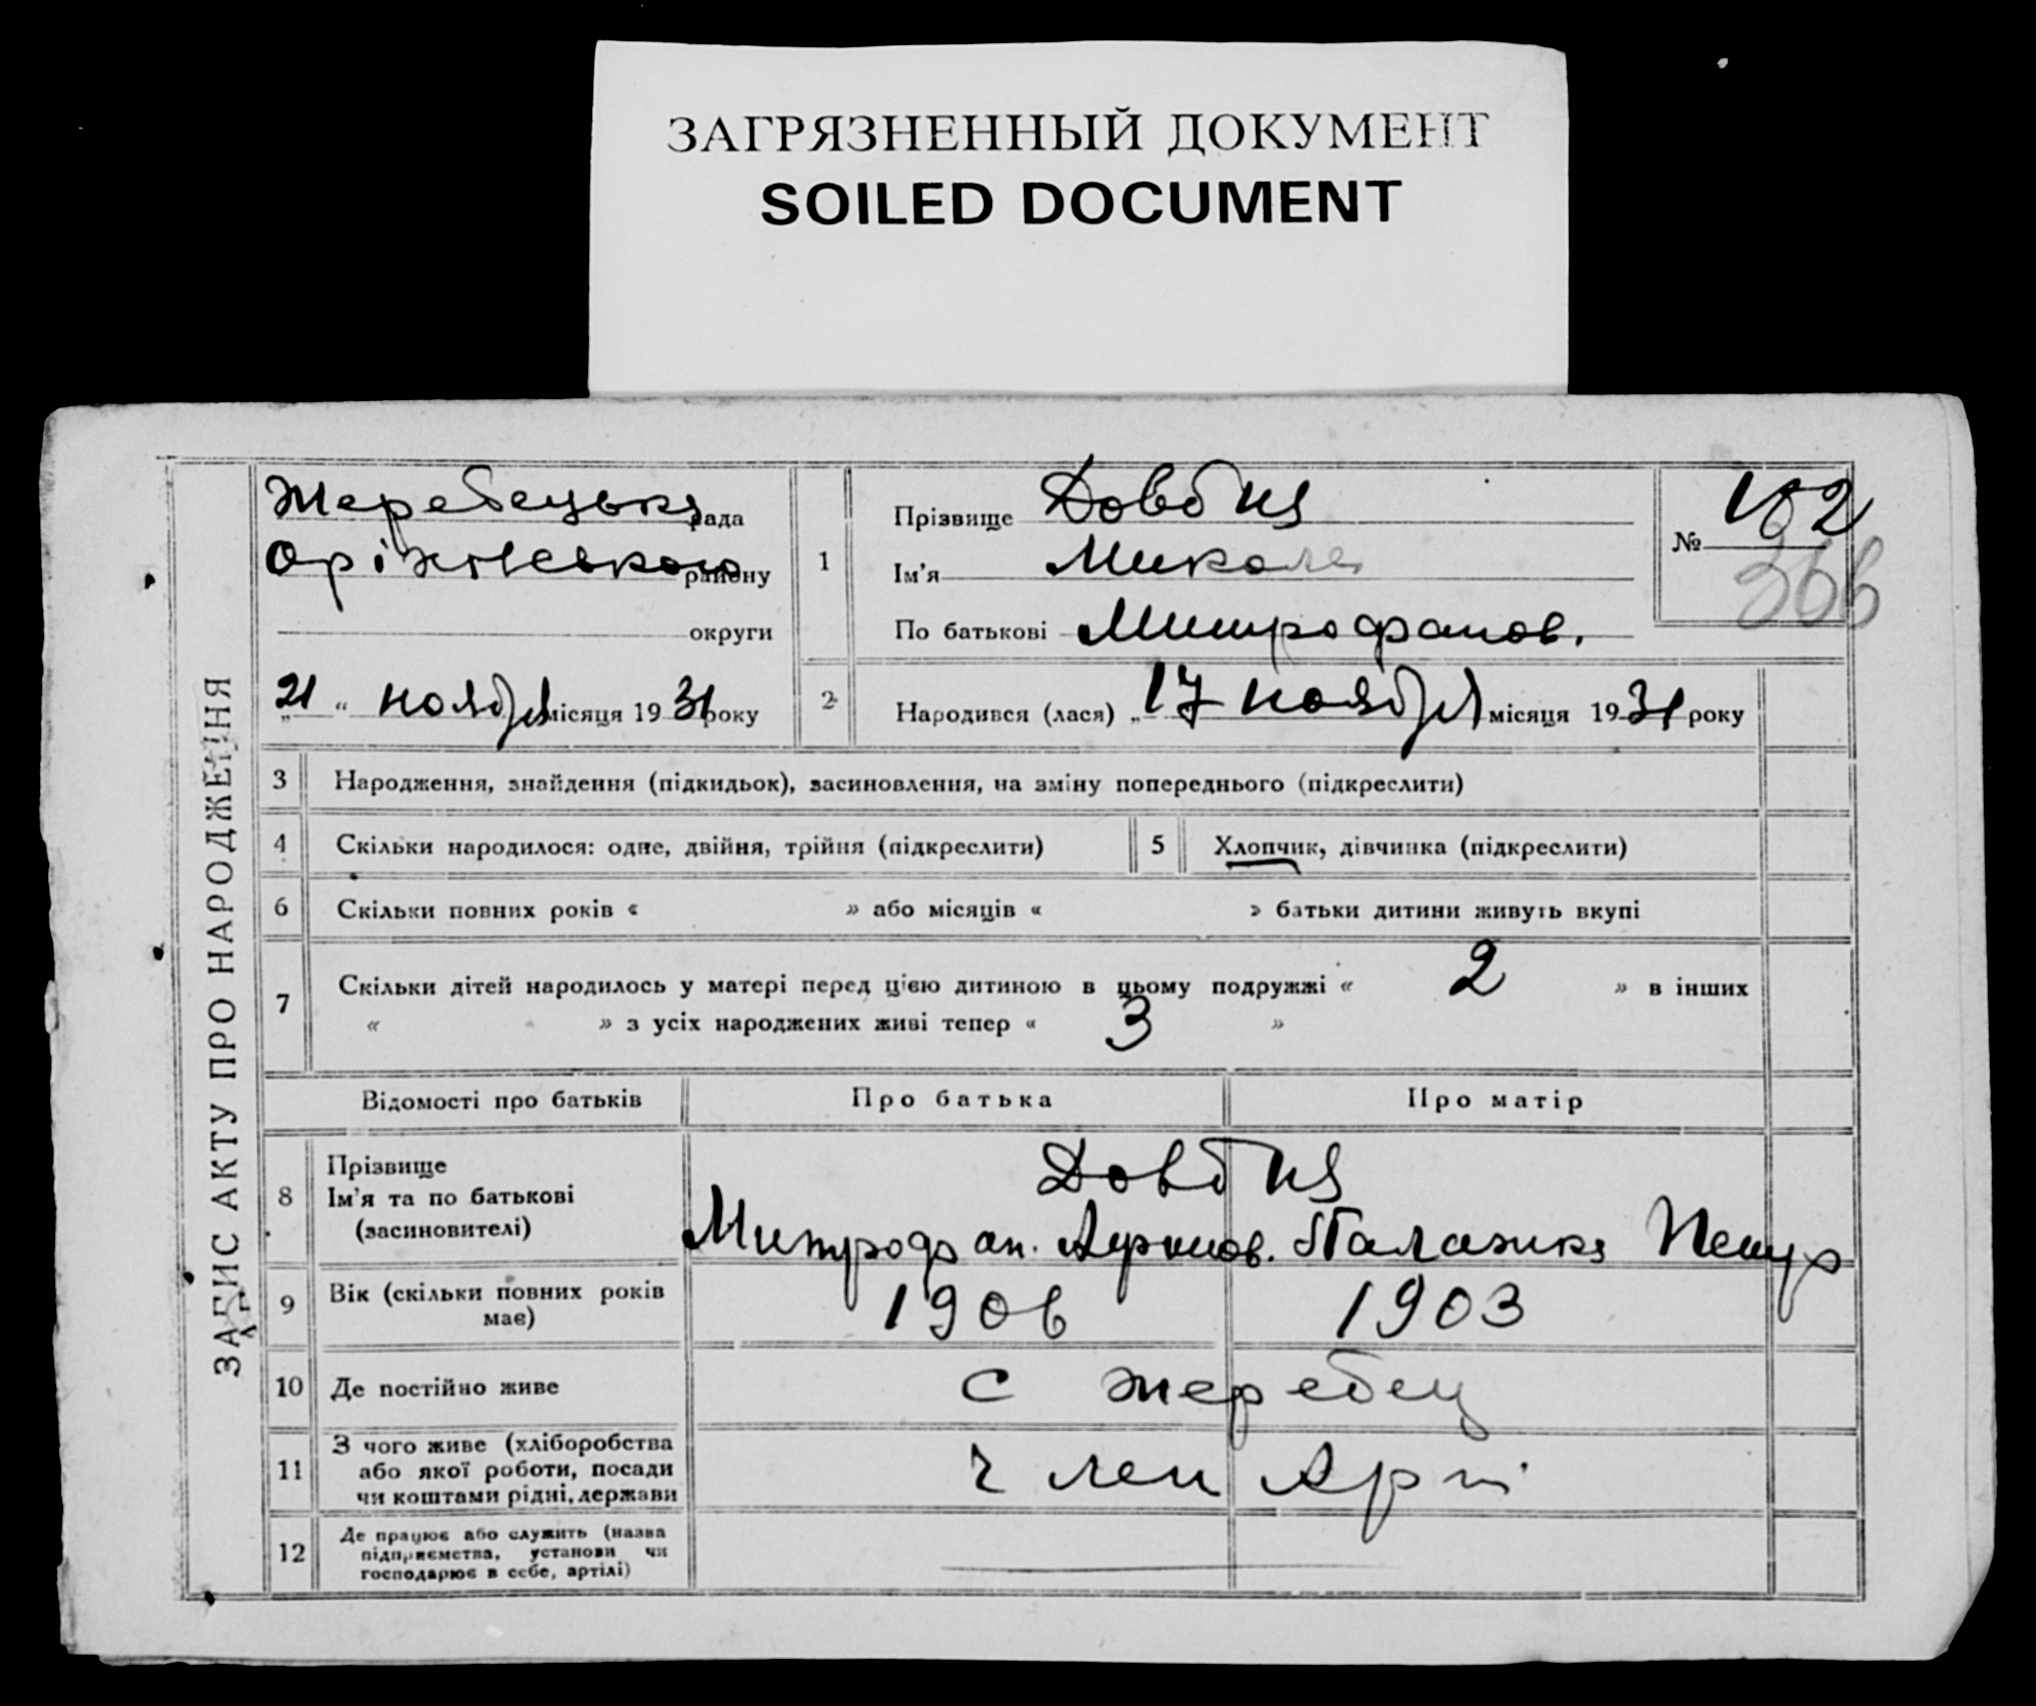 ЗАГРЯЗНЕННЫЙ ДОКУМЕНТ
SOILED DOCUMENT
ЗАПИС АКТУ ПРО НАРОДЖЕННЯ
Жеребецька рада
Оріхівською району
округи
„21“ ноября місяця 1931 року
1
Прізвище Довбня
Ім'я Микола
По батькові Митрофанов.
№ 102
366
2
Народився (лася) „17 ноября місяця 1931 року
3 Народження, знайдення (підкидьок), засиновлення, на зміну попереднього (підкреслити)
4 Скільки народилося: одне, двійня, трійня (підкреслити)
5 Хлопчик, дівчинка (підкреслити)
6 Скільки повних років « » або місяців « » батьки дитини живуть вкупі
7 Скільки дітей народилось у матері перед цією дитиною в цьому подружжі « 2 » в інших
« » з усіх народжених живі тепер « 3 »
Відомості про батьків Про батька Про матір
8 Прізвище
Ім'я та по батькові
(засиновителі)
Довбня
Митрофан. Палажка Петр
9 Вік (скільки повних років
має)
1906 1903
10 Де постійно живе с Жеребец
11 З чого живе (хліборобства
або якої роботи, посади
чи коштами рідні, держави
член Арт
12 Де працює або служить (назва
підприємства, установи чи
господарює в себе, артілі)